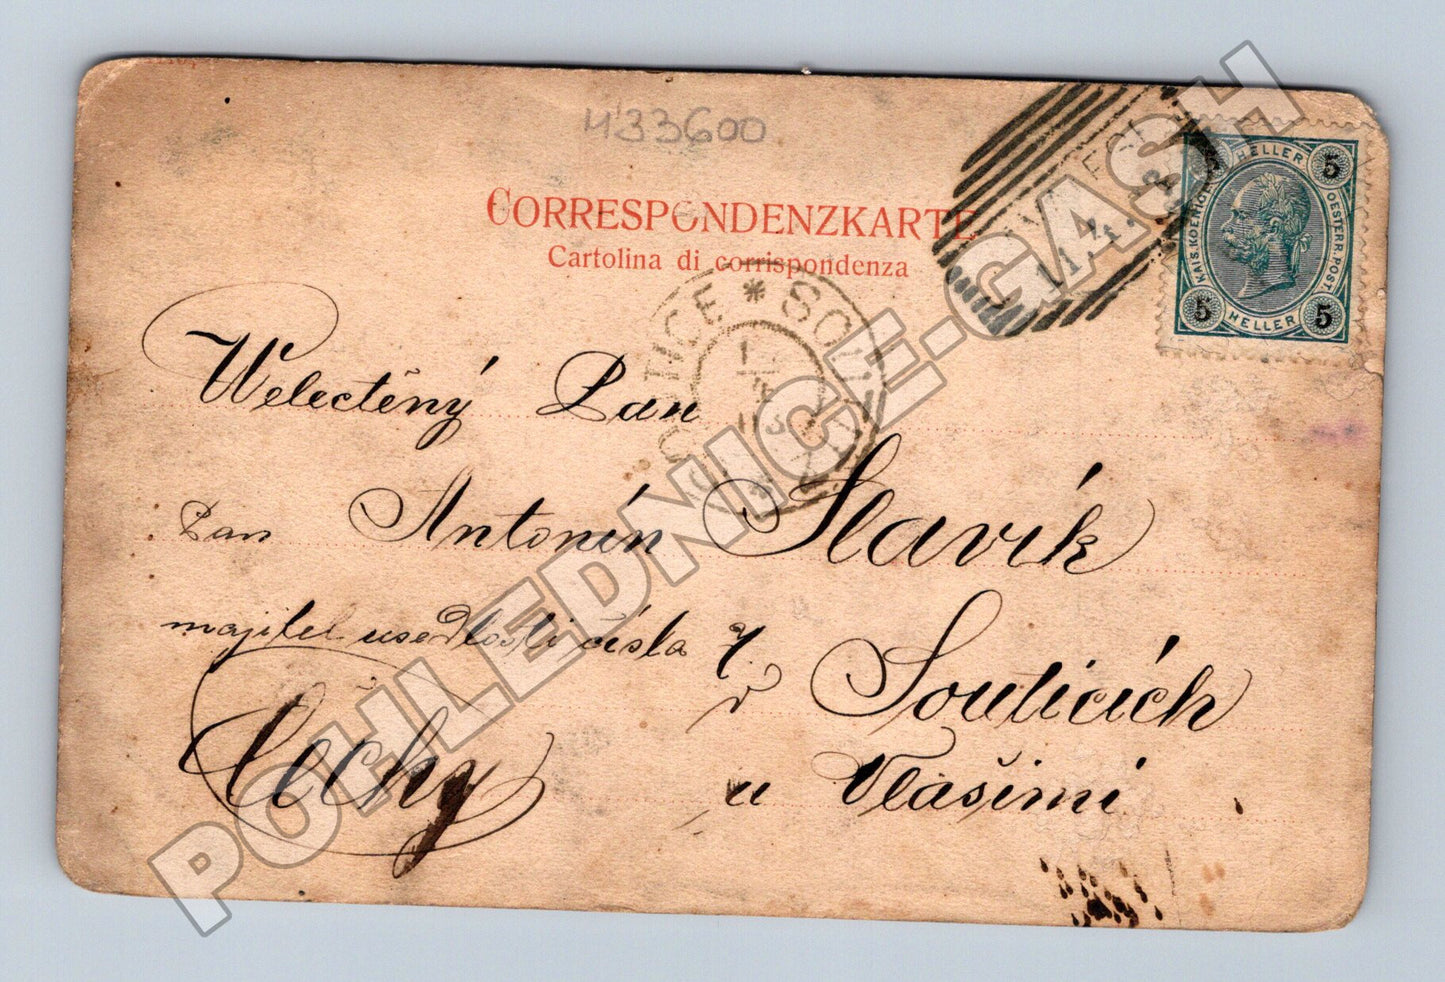 433600
CORRESPONDENZKARTE
Cartolina di corrispondenza
5 HELLER 5
KAIS. KOENIGL. OESTERR. POST
5 HELLER 5
Welectěný Pan
Pan Antonín Slavík
majitel usedlosti čísla 7.
v Souticích
Čechy
u Vlašimi
POHLEDNICE-GASH